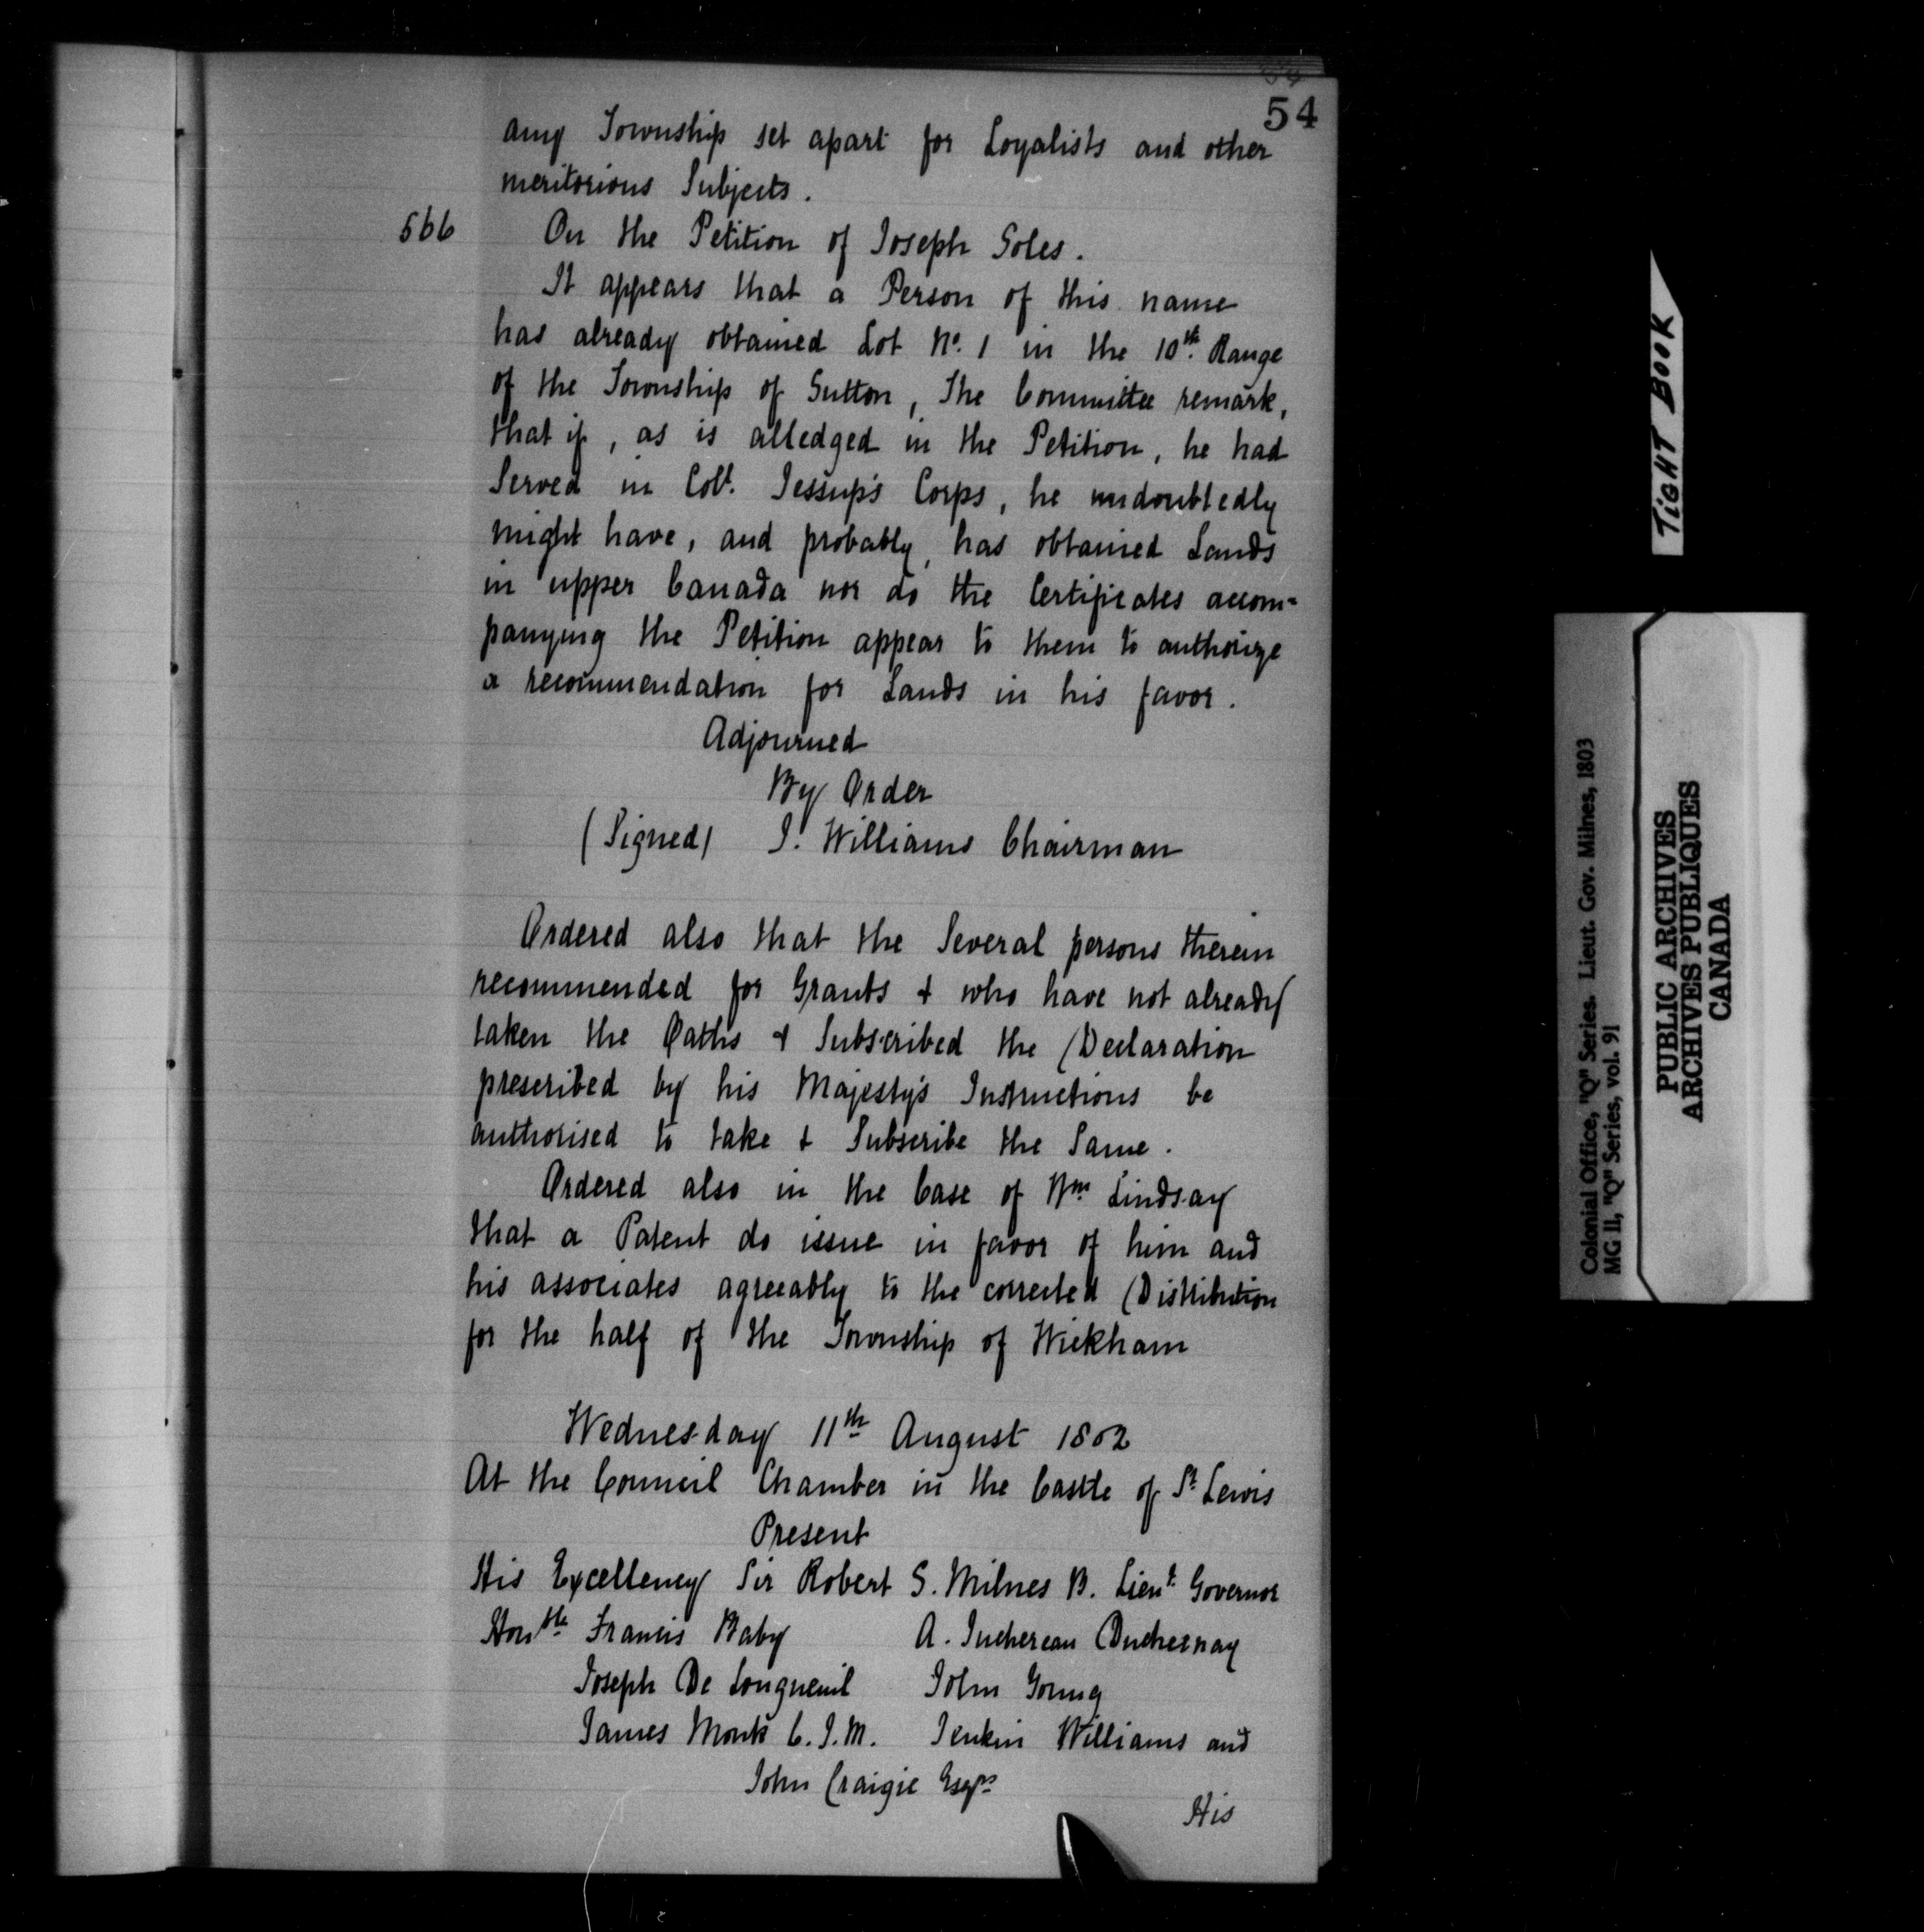 54
any Township set apart for Loyalists and other
meritorious Subjects.
566 On the Petition of Joseph Soles.
It appears that a Person of this name
has already obtained Lot No. 1 in the 10th. Range
of the Township of Sutton, The Committee remark,
that if, as is alledged in the Petition, he had
Served in Coll. Jessup's Corps, he undoubtedly
might have, and probably, has obtained Lands
in upper Canada nor do the Certificates accom=
panying the Petition appear to them to authorize
a recommendation for Lands in his favor.
Adjourned
By Order
(Signed) J. Williams Chairman
Ordered also that the Several persons therein
recommended for Grants & who have not already
taken the Oaths & Subscribed the Declaration
prescribed by his Majesty's Instructions be
authorised to take & Subscribe the Same.
Ordered also in the Case of Wm Lindsay
that a Patent do issue in favor of him and
his associates agreeably to the corrected Distribution
for the half of the Township of Wickham
Wednesday 11th August 1802
At the Council Chamber in the Castle of St Lewis
Present
His Excellency Sir Robert S. Milnes B. Lieut. Governor
Honble Francis Baby A. Juchereau Duchesnay
Joseph De Longueuil John Young
James Monk C.J.M. Jenkin Williams and
John Craigie Esqrs
His
TIGHT BOOK
Colonial Office, "Q" Series. Lieut. Gov. Milnes, 1803
MG 11, "Q" Series, vol. 91
PUBLIC ARCHIVES
ARCHIVES PUBLIQUES
CANADA